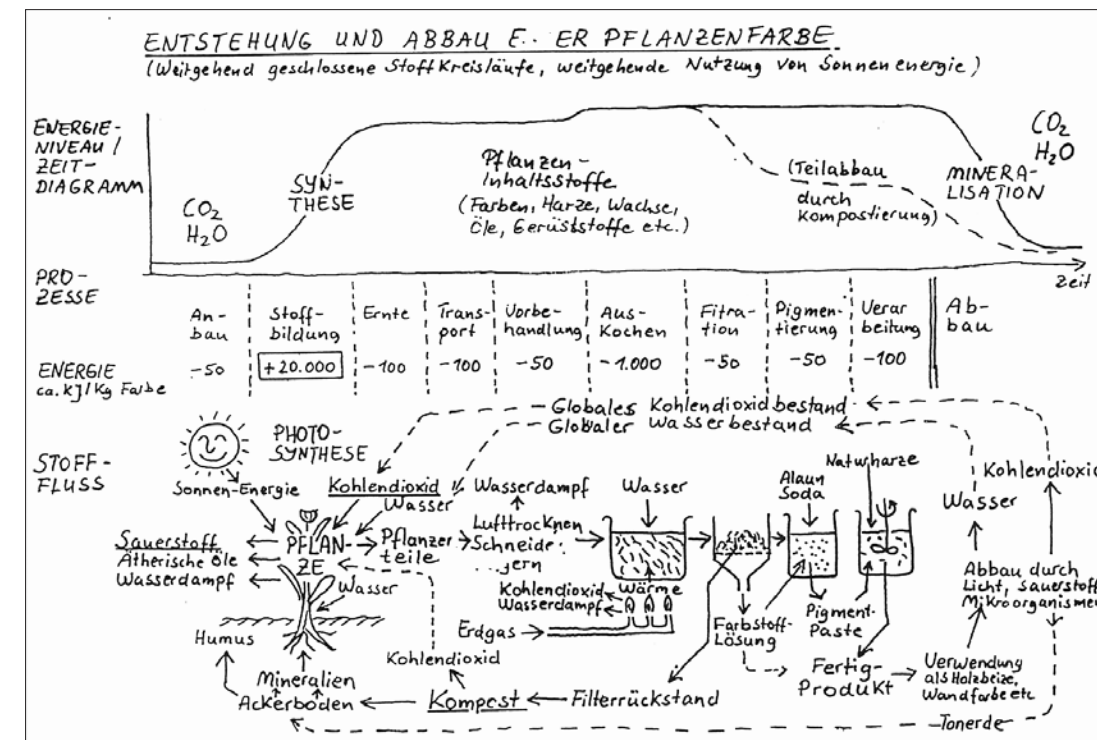 ENTSTEHUNG UND ABBAU E.. ER PFLANZENFARBE
(Weitgehend geschlossene Stoffkreisläufe, weitgehende Nutzung von Sonnenenergie)
ENERGIE-
NIVEAU /
ZEIT-
DIAGRAMM
CO2
H2O
SYN-
THESE
Pflanzen-
Inhaltsstoffe
(Farben, Harze, Wachse,
Öle, Gerüststoffe etc.)
(Teilabbau
durch
Kompostierung)
MINERA-
LISATION
CO2
H2O
Zeit
PRO-
ZESSE
An-
bau
Stoff-
bildung
Ernte
Trans-
port
Vorbe-
handlung
Aus-
Kochen
Fitra-
tion
Pigmen-
tierung
Verar
beitung
Ab-
bau
ENERGIE
ca. kJ/kg Farbe
-50
+20.000
-100
-100
-50
-1.000
-50
-50
-100
Globales Kohlendioxidbestand
Globaler Wasserbestand
STOFF-
FLUSS
PHOTO-
SYNTHESE
Sonnen-Energie
Kohlendioxid
Wasser
Sauerstoff
Ätherische Öle
Wasserdampf
PFLAN-
ZE
Wasser
Humus
Mineralien
Ackerboden
Pflanzen
teile
Wasserdampf
Lufttrocknen
Schneide
gern
Wasser
Wärme
Kohlendioxid
Wasserdampf
Erdgas
Kohlendioxid
Kompost
Filterrückstand
Farbstoff-
Lösung
Alaun
Soda
Pigment-
Paste
Naturharze
Fertig-
Produkt
Verwendung
als Holzbeize,
Wandfarbe etc
Abbau durch
Licht, Sauerstoff
Mikroorganismen
Wasser
Kohlendioxid
Tonerde